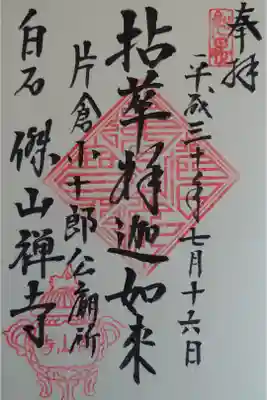 奉拝
平成三十年七月十六日
拈華釋迦如來
片倉小十郎公廟所
白石 傑山禅寺